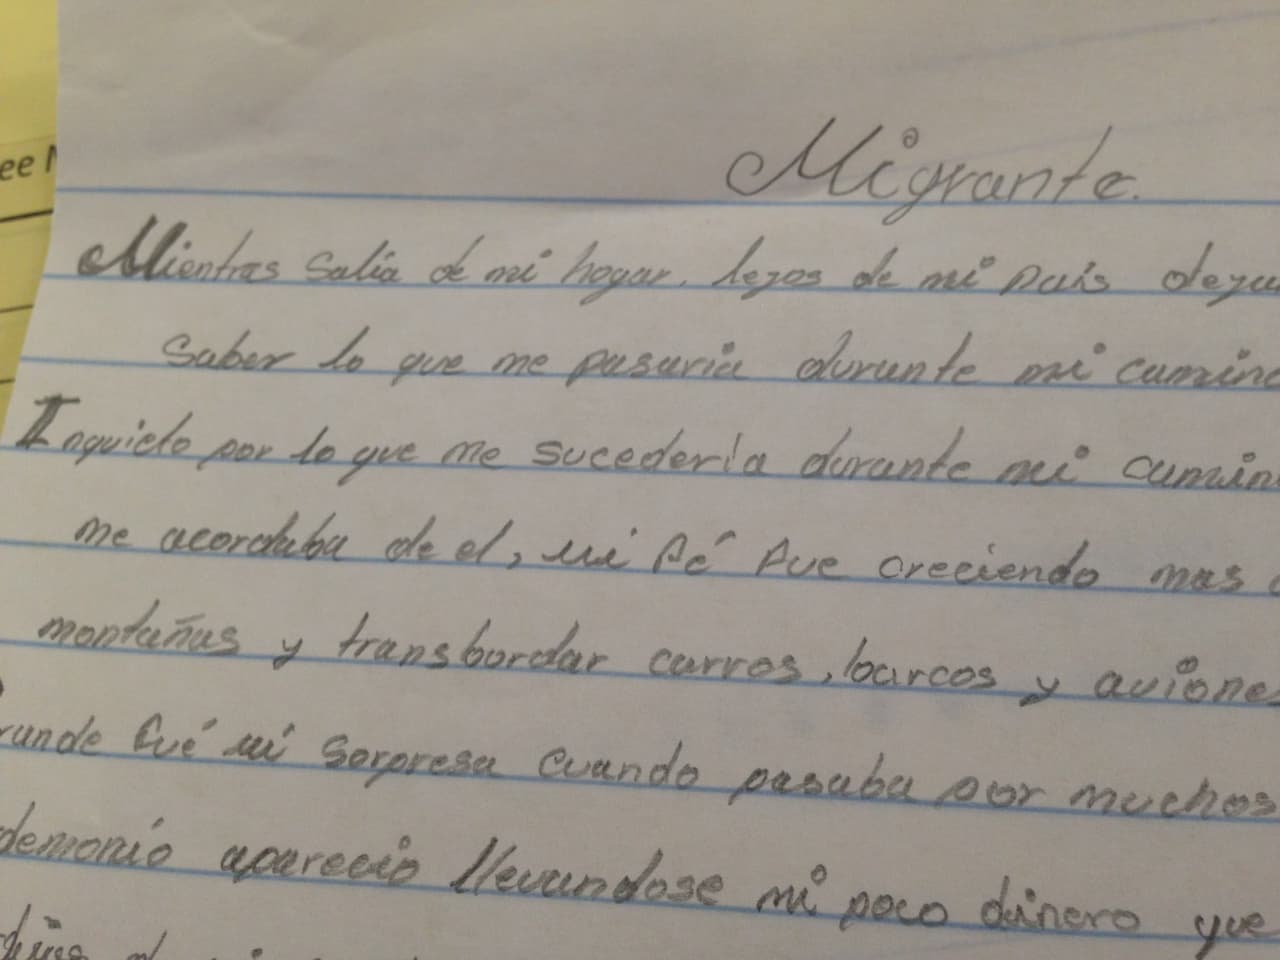 ee
Migrante.
Mientras salia de mi hogar. lezos de mi pais
Saber lo que me pasaria durante mi
Inquieto por lo que me sucederia durante mi
me acordaba de el, mi fé fue creciendo mas
montañas y transbordar carros, barcos y aviones
fué mi sorpresa cuando pasaba por muchos
demonió aparecio llevandose mi poco dinero que